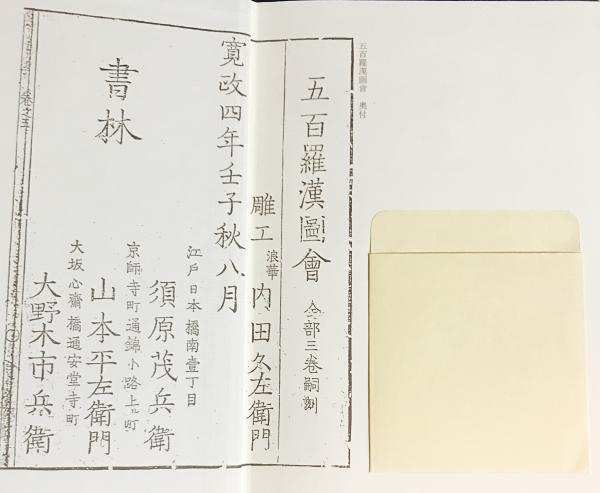 五百羅漢圖會　奥付
五百羅漢圖會　全部三卷嗣刻
雕工　浪華　内田久左衛門
寛政四年壬子秋八月
江戸日本橋南壹丁目
須原茂兵衛
京師寺町通錦小路上ル町
山本平左衛門
大坂心齋橋通安堂寺町
大野木市兵衛
書林
卷之五